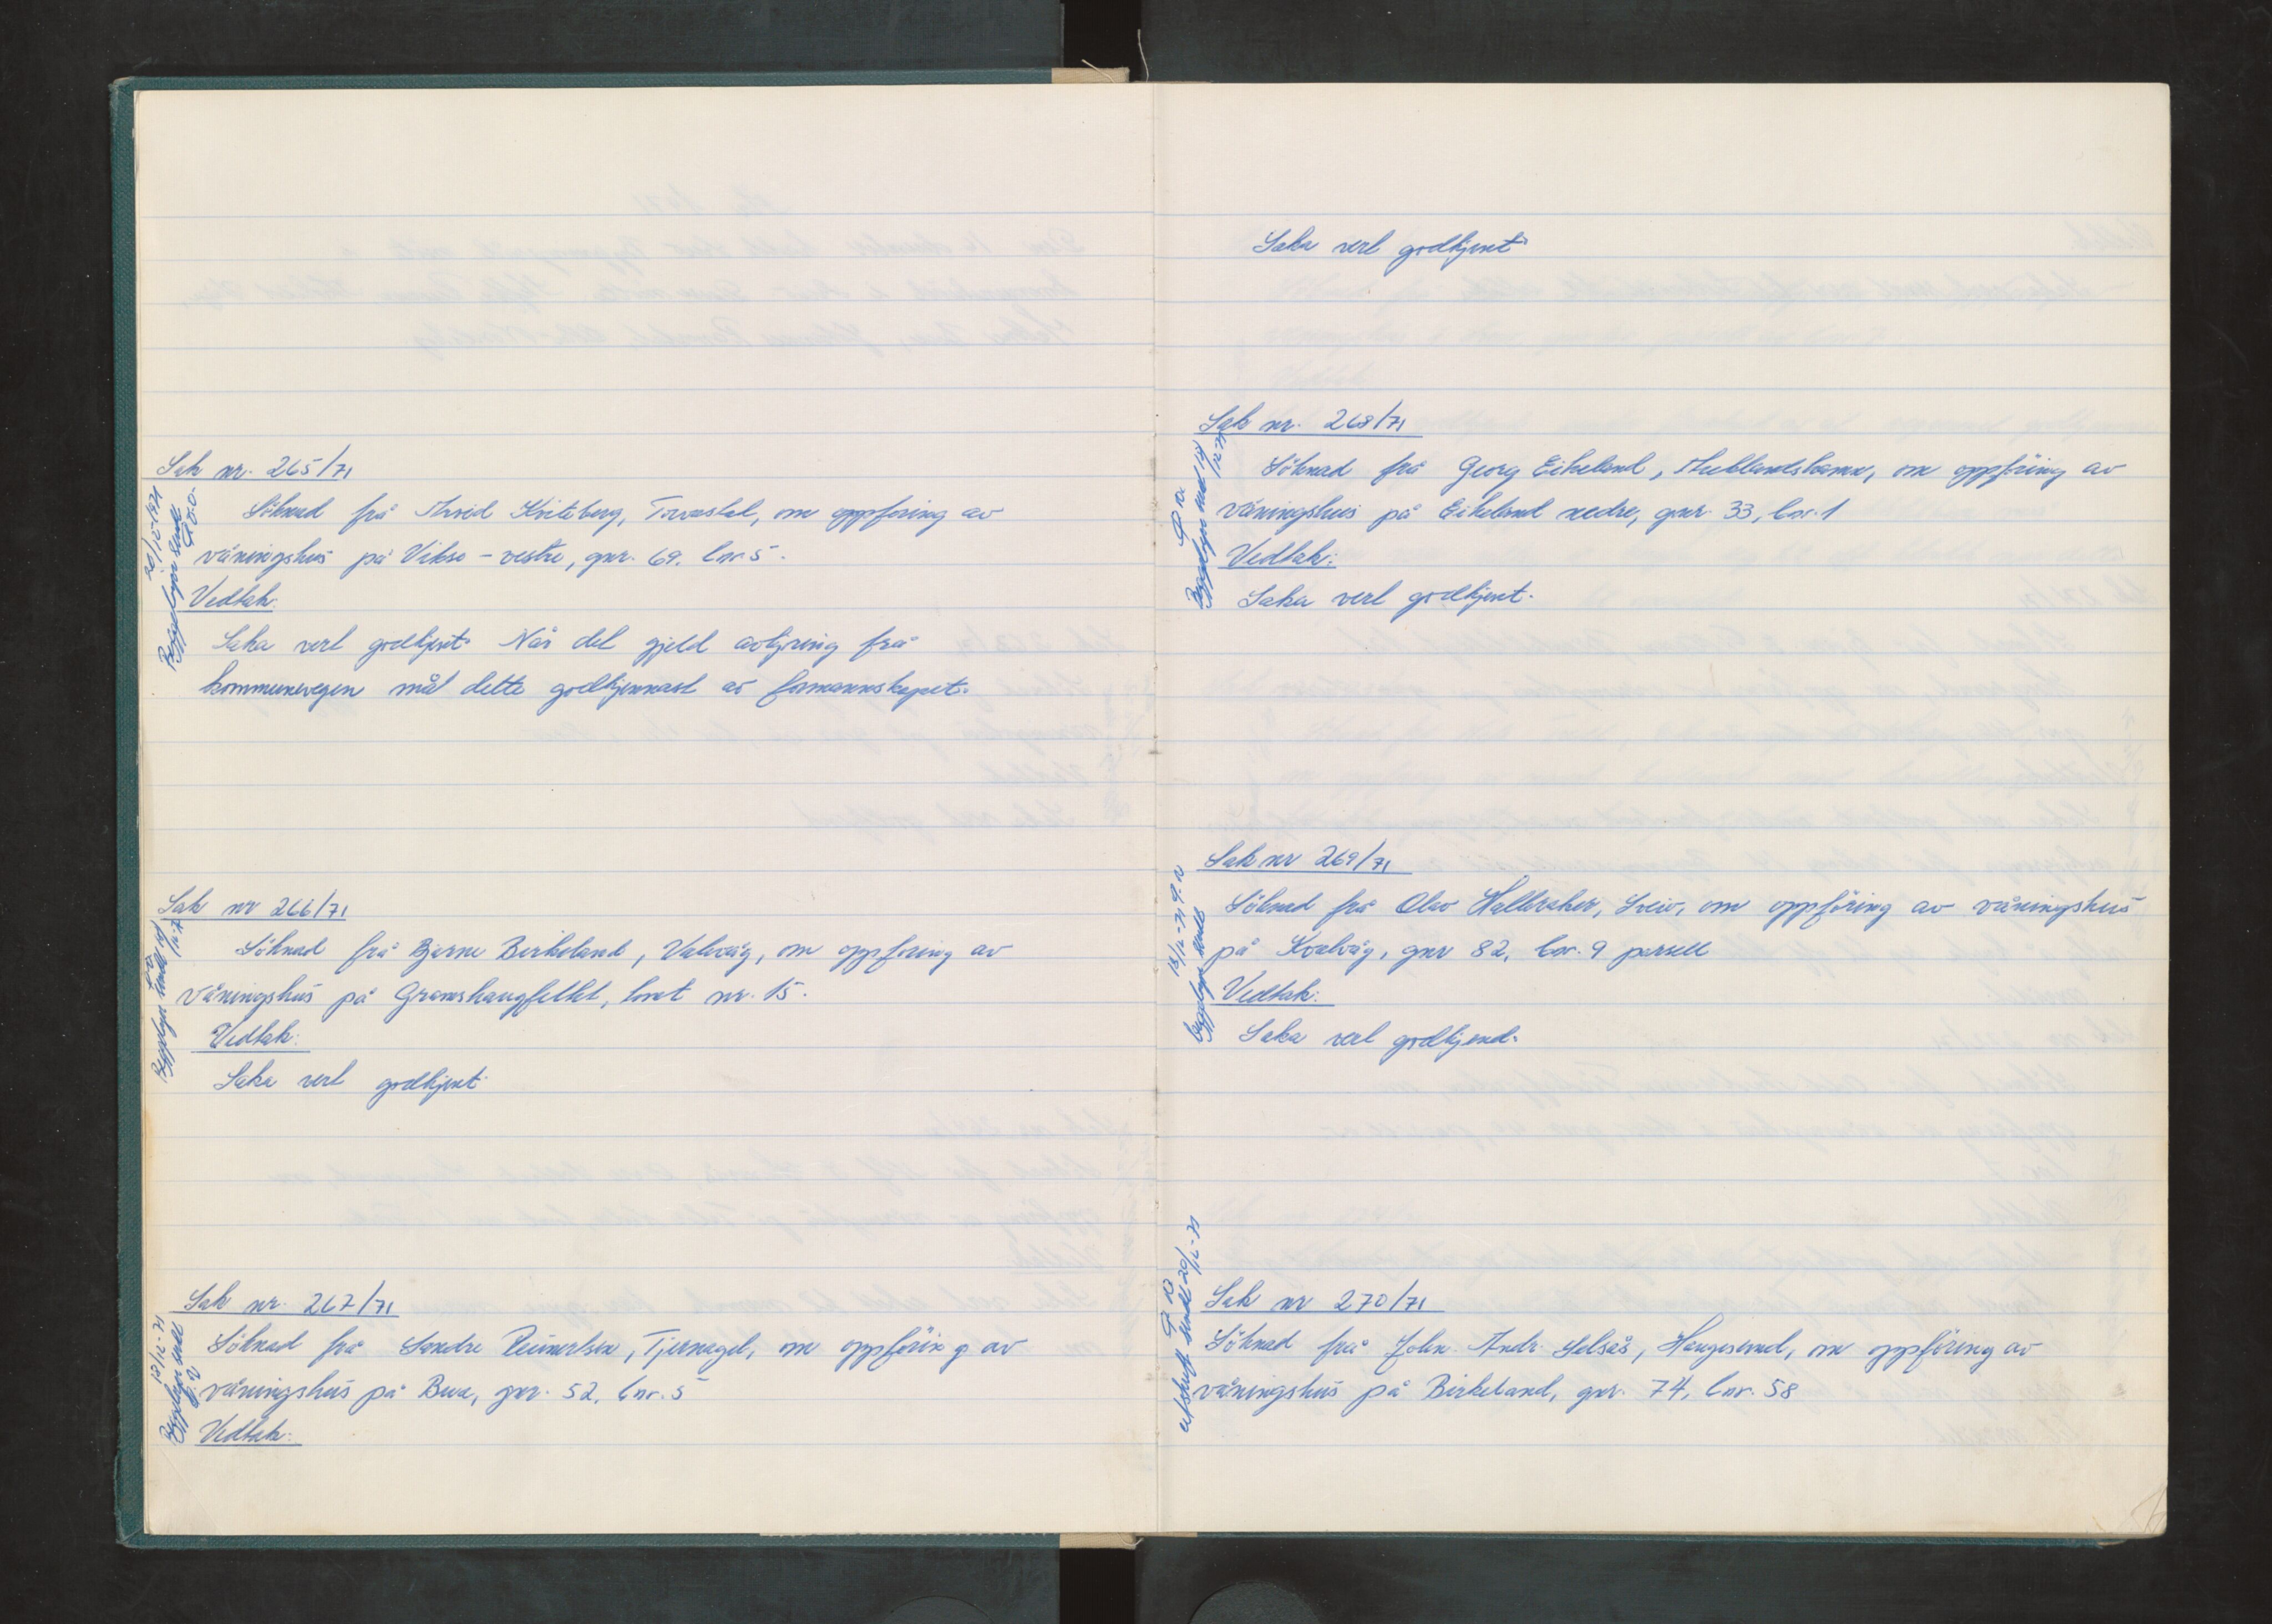 Sak nr. 265/71
Söknad frå Arvid Kviteberg, Torvastad, om oppföring av
våningshus på Vikse - vestre, gnr. 69. bnr 5.
Vedtak:
Saka vert godkjent. Når det gjeld avkjøring frå
kommunevegen må dette godkjennast av formannskapet.
20/12-1971
Byggeløyve sendt
Sak nr 266/71
Söknad frå Bjarne Birkeland, Valevåg, om oppföring av
våningshus på Gramshaugfeltet, tomt nr. 15.
Vedtak:
Saka vert godkjent.
Byggeløyve sendt 14/12-71
Sak nr. 267/71
Söknad frå Sandre Reinertsen, Tjernagel, om oppföring av
våningshus på Bua, gnr. 52, bnr. 5
Vedtak:
13/12-71
Byggeløyve sendt
Saka vert godkjent
Sak nr. 268/71
Söknad frå Georg Eikeland, Mæklandshamn, om oppföring av
våningshus på Eikeland nedre, gnr. 33, bnr. 1
Vedtak:
Saka vert godkjent.
Byggeløyve sendt 14/12-71
Sak nr 269/71
Söknad frå Olav Halleraker, Sveio, om oppföring av våningshus
på Kvalvåg, gnr 82, bnr. 9 parsell
Vedtak:
Saka vert godkjend.
13/12-71
byggeløyve sendt
Sak nr 270/71
Söknad frå John Andr. Selsås, Haugesund, om oppföring av
våningshus på Birkeland, gnr. 74, bnr. 58
utskrift sendt 20/12-71